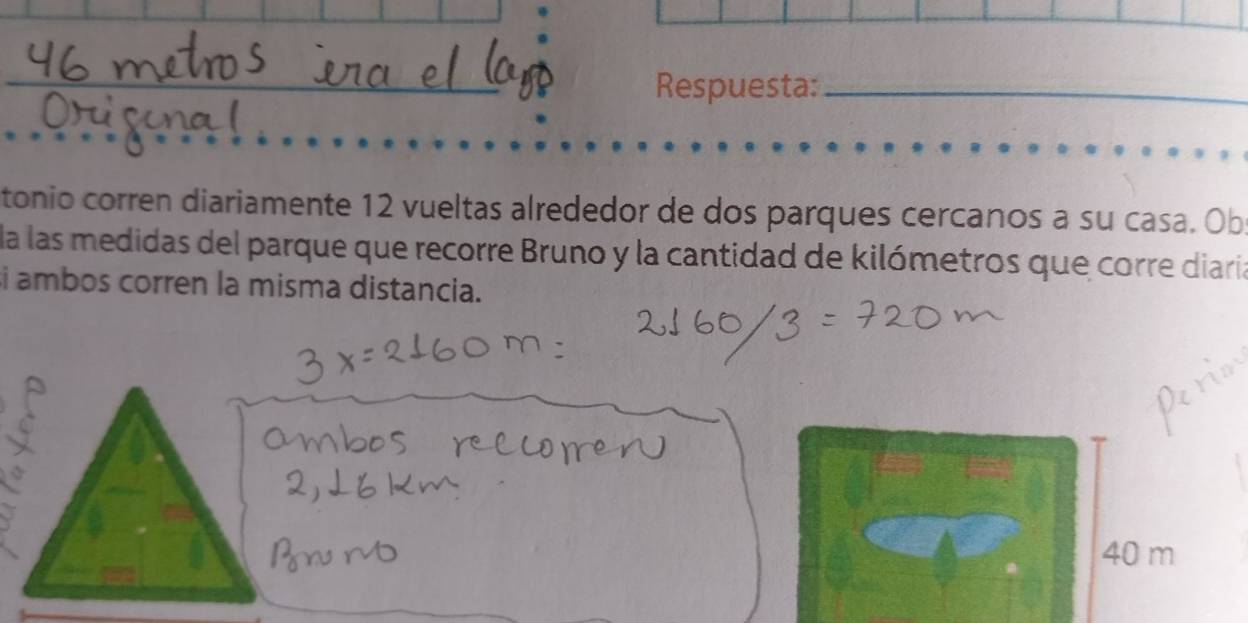 46 metros era el largo
Original
Respuesta:
tonio corren diariamente 12 vueltas alrededor de dos parques cercanos a su casa. Ob
la las medidas del parque que recorre Bruno y la cantidad de kilómetros que corre diaria
i ambos corren la misma distancia.
2160/3 = 720 m
3x = 2160 m:
ambos reccorren
2,16 km.
Bruno
40 m